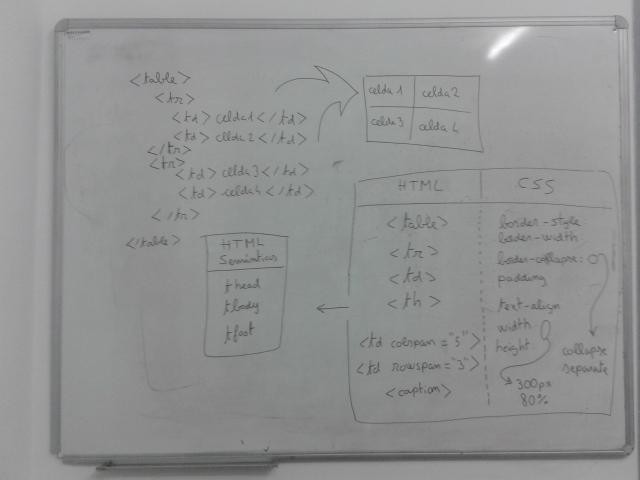 <table>
<tr>
<td> celda1 </td>
<td> celda2 </td>
</tr>
<tr>
<td> celda3 </td>
<td> celda4 </td>
</tr>
</table>
celda 1 celda 2
celda3 celda 4
HTML
Semánticas
thead
tbody
tfoot
HTML CSS
<table>
<tr>
<td>
<th>
<td colspan="5">
<td rowspan="3">
<caption>
border-style
border-width
border-collapse:
padding
text-align
width
height
collapse
separate
300px
80%